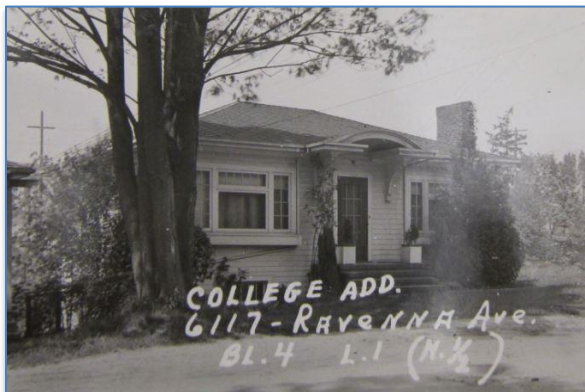 COLLEGE ADD.
6117-RAVENNA AVE.
BL.4 L.1 (N.½)